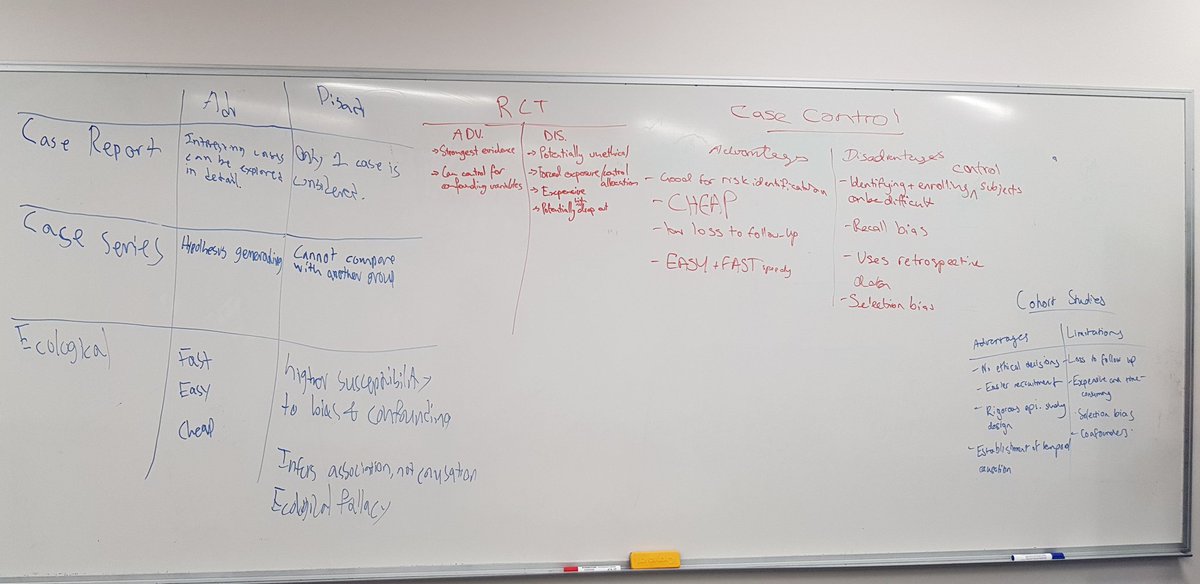 Adv
Disadv
Case Report
Interesting cases
can be explored
in detail.
Only 1 case is
considered.
Case Series
Hypothesis generating
Cannot compare
with another group
Ecological
Fast
Easy
Cheap
higher susceptibility
to bias & confounding
Infers association, not causation
Ecological fallacy
RCT
ADV.
→ Strongest evidence
→ Can control for
confounding variables
DIS.
→ Potentially unethical
→ Forced exposure/control
allocation
→ Expensive
→ Potentially drop out
Case Control
Advantages
- Good for risk identification
- CHEAP
- low loss to follow-up
- EASY + FAST speedy
Disadvantages
- Identifying + enrolling control subjects
can be difficult
- Recall bias
- Uses retrospective
data
- Selection bias
Cohort Studies
Advantages
- No ethical decisions
- Easier recruitment
- Rigorous epi. study
design
- Establishment of temporal
Limitations
- Loss to follow up
- Expensive and time-
consuming
- Selection bias
- Confounders